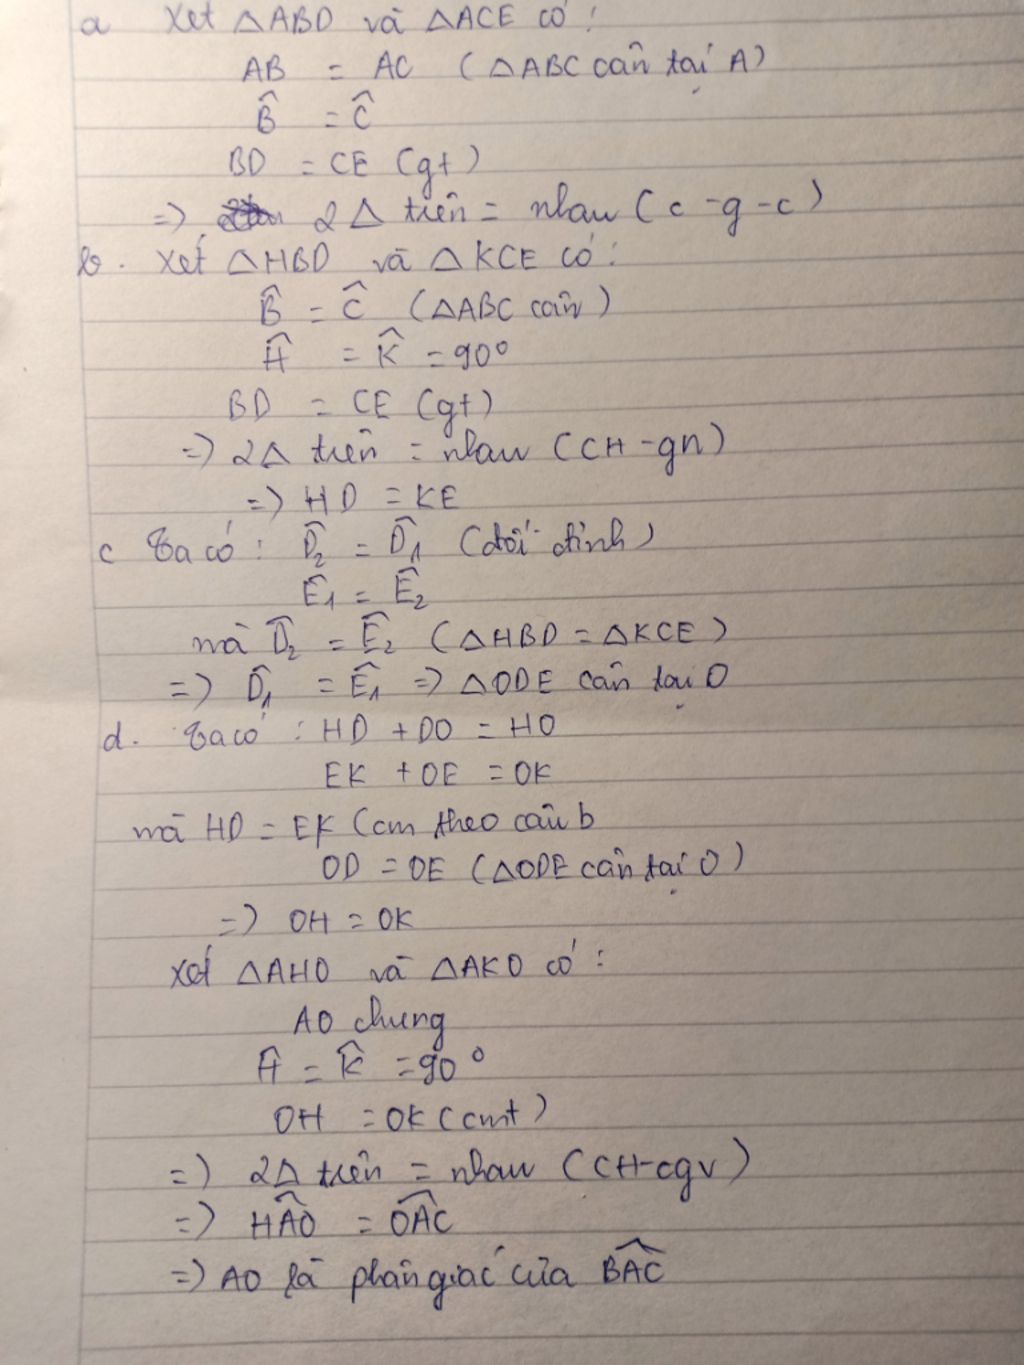 a Xét △ABD và △ACE có :
AB = AC (△ABC cân tại A)
B̂ = Ĉ
BD = CE (gt)
=> 2△ trên = nhau (c-g-c)
b. Xét △HBD và △KCE có :
B̂ = Ĉ (△ABC cân)
Ĥ = K̂ = 90°
BD = CE (gt)
=> 2△ trên = nhau (CH-gn)
=> HD = KE
c Ta có : D̂₂ = D̂₁ (đối đỉnh)
Ê₁ = Ê₂
mà D̂₂ = Ê₂ (△HBD = △KCE)
=> D̂₁ = Ê₁ => △ODE cân tại O
d. Ta có : HD + DO = HO
EK + OE = OK
mà HD = EK (cm theo câu b
OD = OE (△ODE cân tại O)
=> OH = OK
Xét △AHO và △AKO có :
AO chung
Ĥ = K̂ = 90°
OH = OK (cmt)
=> 2△ trên = nhau (CH-cgv)
=> HÂO = OÂC
=> AO là phân giác của BÂC